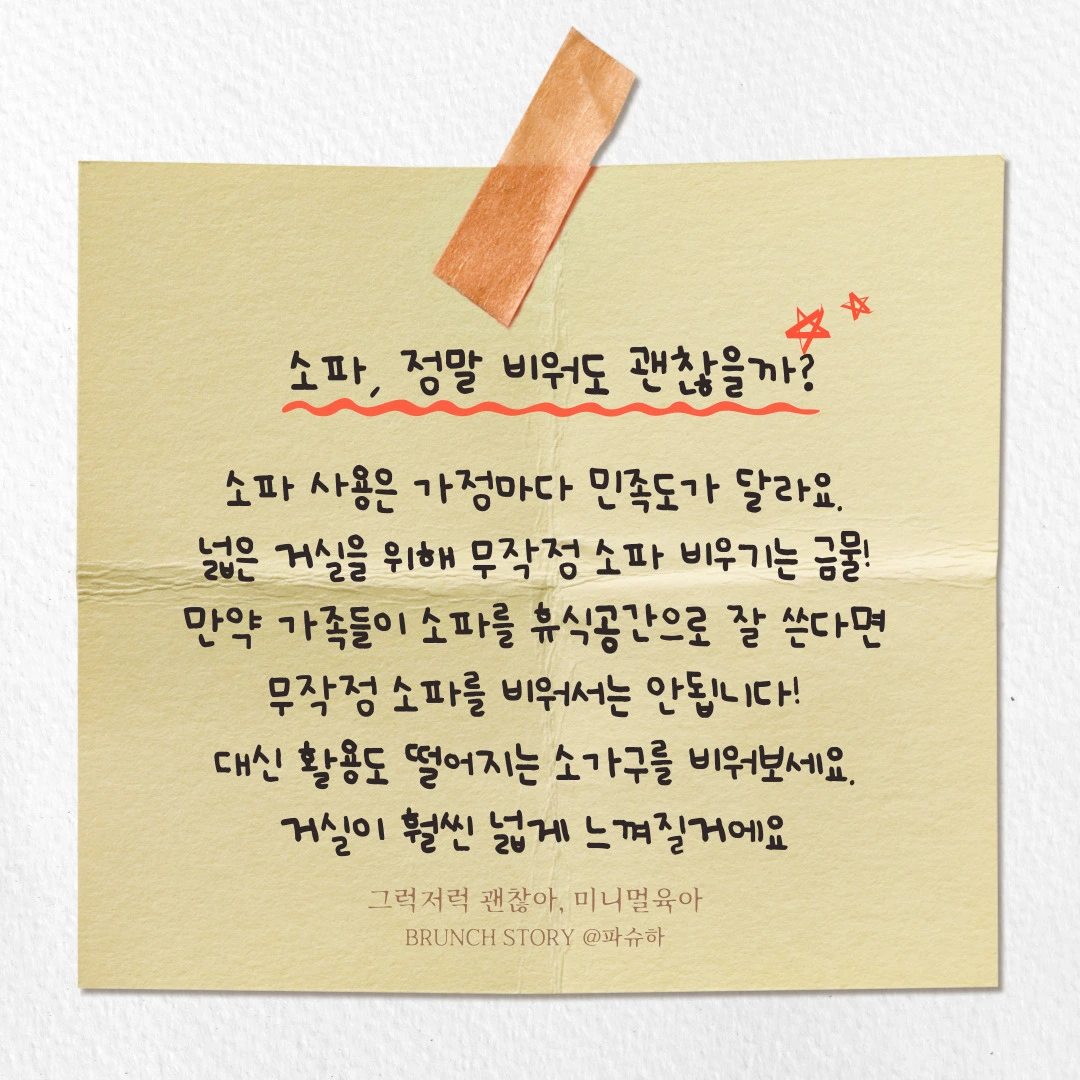 소파, 정말 비워도 괜찮을까?
소파 사용은 가정마다 민족도가 달라요.
넓은 거실을 위해 무작정 소파 비우기는 금물!
만약 가족들이 소파를 휴식공간으로 잘 쓴다면
무작정 소파를 비워서는 안됩니다!
대신 활용도 떨어지는 소가구를 비워보세요.
거실이 훨씬 넓게 느껴질거에요
그럭저럭 괜찮아, 미니멀육아
BRUNCH STORY @파슈하